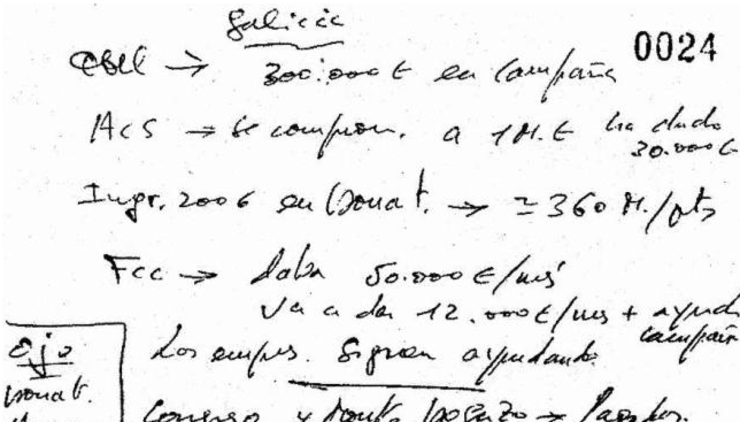 Galicia
0024
→ 300.000 € en campaña
ACS → se comprom. a 1 M. € ha dado
30.000 €
Ingr. 2006 en Donat. → ≃ 360 M./pts
FCC → daba 50.000 €/mes
Va a dar 12.000 €/mes + ayuda
campañ
Ojo
Los empres. siguen ayudando.
Donat.
→